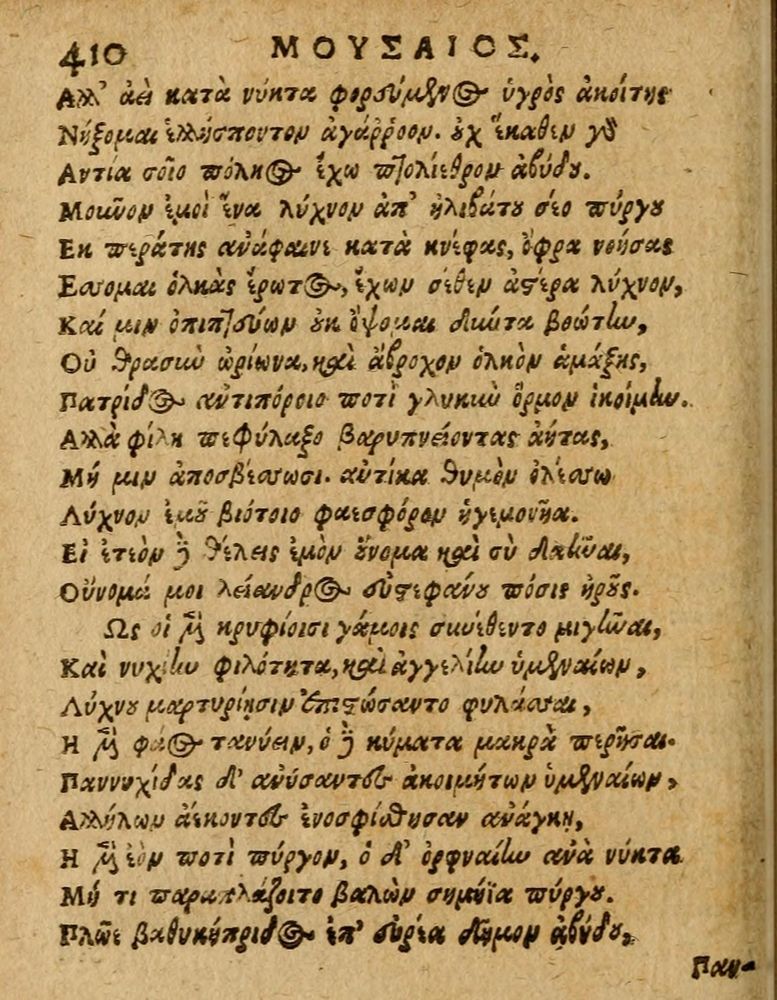 410 ΜΟΥΣΑΙΟΣ.
Αλλ' αἰεὶ κατὰ νύκτα φορεύμενος ὑγρὸς ἀκοίτης
Νήξομαι ἑλλήσποντον ἀγάῤῥοον. οὐχ ἕκαθεν γὰρ
Αντία σοῖο πόληος ἔχω πτολίεθρον ἀβύδου.
Μοῦνον ἐμοὶ ἕνα λύχνον ἀπ' ἠλιβάτου σέο πύργου
Εκ περάτης ἀνάφαινε κατὰ κνέφας, ὄφρα νοήσας
Εσσομαι ὁλκὰς ἔρωτος, ἔχων σέθεν ἀστέρα λύχνον,
Καί μιν ὀπιπτεύων οὐκ ὄψομαι δυῶτα βοώτην,
Οὐ θρασὺν ὠρίωνα, καὶ ἄβροχον ὁλκὸν ἁμάξης,
Πατρίδος ἀντιπόροιο ποτὶ γλυκὺν ὅρμον ἱκοίμην.
Αλλὰ φίλη πεφύλαξο βαρυπνείοντας ἀήτας,
Μή μιν ἀποσβέσσωσι. αὐτίκα θυμὸν ὀλέσσω
Λύχνον ἐμοῦ βιότοιο φαεσφόρον ἡγεμονῆα.
Εἰ ἐτεὸν δὲ θέλεις ἐμὸν οὔνομα καὶ σὺ δαῆναι,
Οὔνομά μοι λείανδρος εὐστεφάνου πόσις ἡροῦς.
Ως οἱ μὲν κρυφίοισι γάμοις συνέθεντο μιγῆναι,
Καὶ νυχίην φιλότητα, καὶ ἀγγελίην ὑμεναίων,
Λύχνου μαρτυρίῃσιν ἐπιστώσαντο φυλάσσειν,
Η μὲν φάος τανύειν, ὁ δὲ κύματα μακρὰ περῆσαι.
Παννυχίδας δ' ἀνύσαντες ἀκοιμήτων ὑμεναίων,
Αλλήλων ἀέκοντες ἐνοσφίσθησαν ἀνάγκῃ,
Η μὲν ἑὸν ποτὶ πύργον, ὁ δ' ὀρφναίην ἀνὰ νύκτα
Μή τι παραπλάζοιτο βαλὼν σημήϊα πύργου.
Πλῶε βαθυκρήπιδος ἐπ' εὐρέα δῆμον ἀβύδου,
Παν-